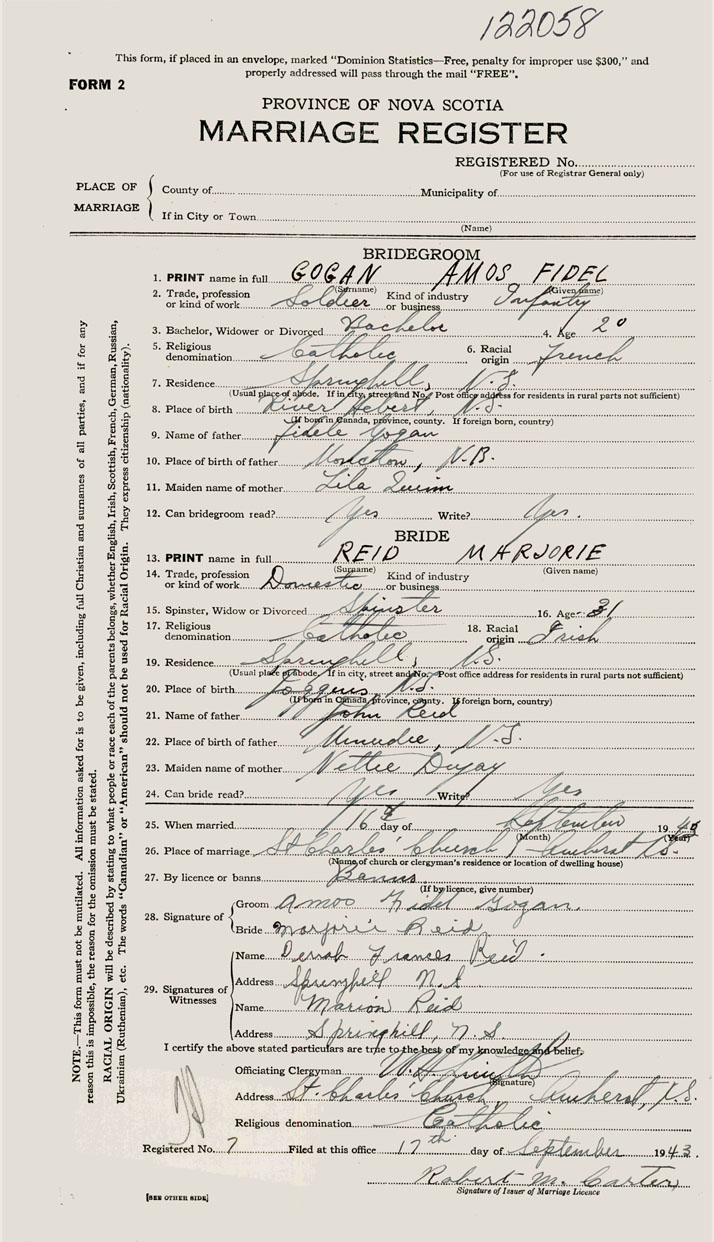 122058
This form, if placed in an envelope, marked "Dominion Statistics—Free, penalty for improper use $300," and
properly addressed will pass through the mail "FREE".
FORM 2
PROVINCE OF NOVA SCOTIA
MARRIAGE REGISTER
REGISTERED No.
(For use of Registrar General only)
PLACE OF MARRIAGE
County of Municipality of
If in City or Town
(Name)
BRIDEGROOM
1. PRINT name in full GOGAN AMOS FIDEL
(Surname) (Given name)
2. Trade, profession or kind of work Soldier Kind of industry or business Infantry
3. Bachelor, Widower or Divorced Bachelor 4. Age 20
5. Religious denomination Catholic 6. Racial origin French
7. Residence Springhill, N.S.
(Usual place of abode. If in city, street and No. Post office address for residents in rural parts not sufficient)
8. Place of birth River Hebert, N.S.
(If born in Canada, province, county. If foreign born, country)
9. Name of father Fidele Gogan
10. Place of birth of father Moncton, N.B.
11. Maiden name of mother Lila Quinn
12. Can bridegroom read? Yes Write? Yes.
BRIDE
13. PRINT name in full REID MARJORIE
(Surname) (Given name)
14. Trade, profession or kind of work Domestic Kind of industry or business
15. Spinster, Widow or Divorced Spinster 16. Age 21
17. Religious denomination Catholic 18. Racial origin Irish
19. Residence Springhill, N.S.
(Usual place of abode. If in city, street and No. Post office address for residents in rural parts not sufficient)
20. Place of birth Joggins, N.S.
(If born in Canada, province, county. If foreign born, country)
21. Name of father John Reid
22. Place of birth of father Minudie, N.S.
23. Maiden name of mother Nettie
24. Can bride read? Yes Write? Yes
25. When married 16th day of September 19
(Month) (Year)
26. Place of marriage St Charles' Church, Amherst N.S.
(Name of church or clergyman's residence or location of dwelling house)
27. By licence or banns Banns
(If by licence, give number)
28. Signature of
Groom Amos Fidel Gogan.
Bride Marjorie Reid
29. Signatures of Witnesses
Name Frances Reid.
Address Springhill N.S
Name Marion Reid
Address Springhill, N.S
I certify the above stated particulars are true to the best of my knowledge and belief.
Officiating Clergyman
(Signature)
Address St. Charles' Church, Amherst, N.S.
Religious denomination Catholic
Registered No. 7 Filed at this office 17th day of September 1943.
Robert M. Carter
Signature of Issuer of Marriage Licence
[SEE OTHER SIDE]
NOTE.—This form must not be mutilated. All information asked for is to be given, including full Christian and surnames of all parties, and if for any
reason this is impossible, the reason for the omission must be stated.
RACIAL ORIGIN will be described by stating to what people or race each of the parents belongs, whether English, Irish, Scottish, French, German, Russian,
Ukrainian (Ruthenian), etc. The words "Canadian" or "American" should not be used for Racial Origin. They express citizenship (nationality).